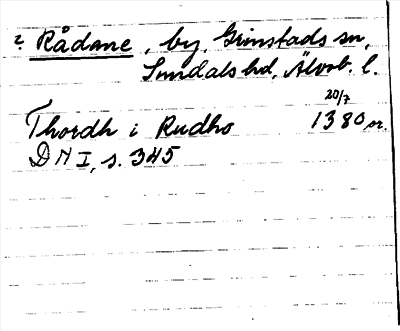 2. Rådane, by, Grinstads sn,
Sundals hd, Älvsb. l.
20/7
Thordh i Rudho 1380 or.
DN I, s. 345